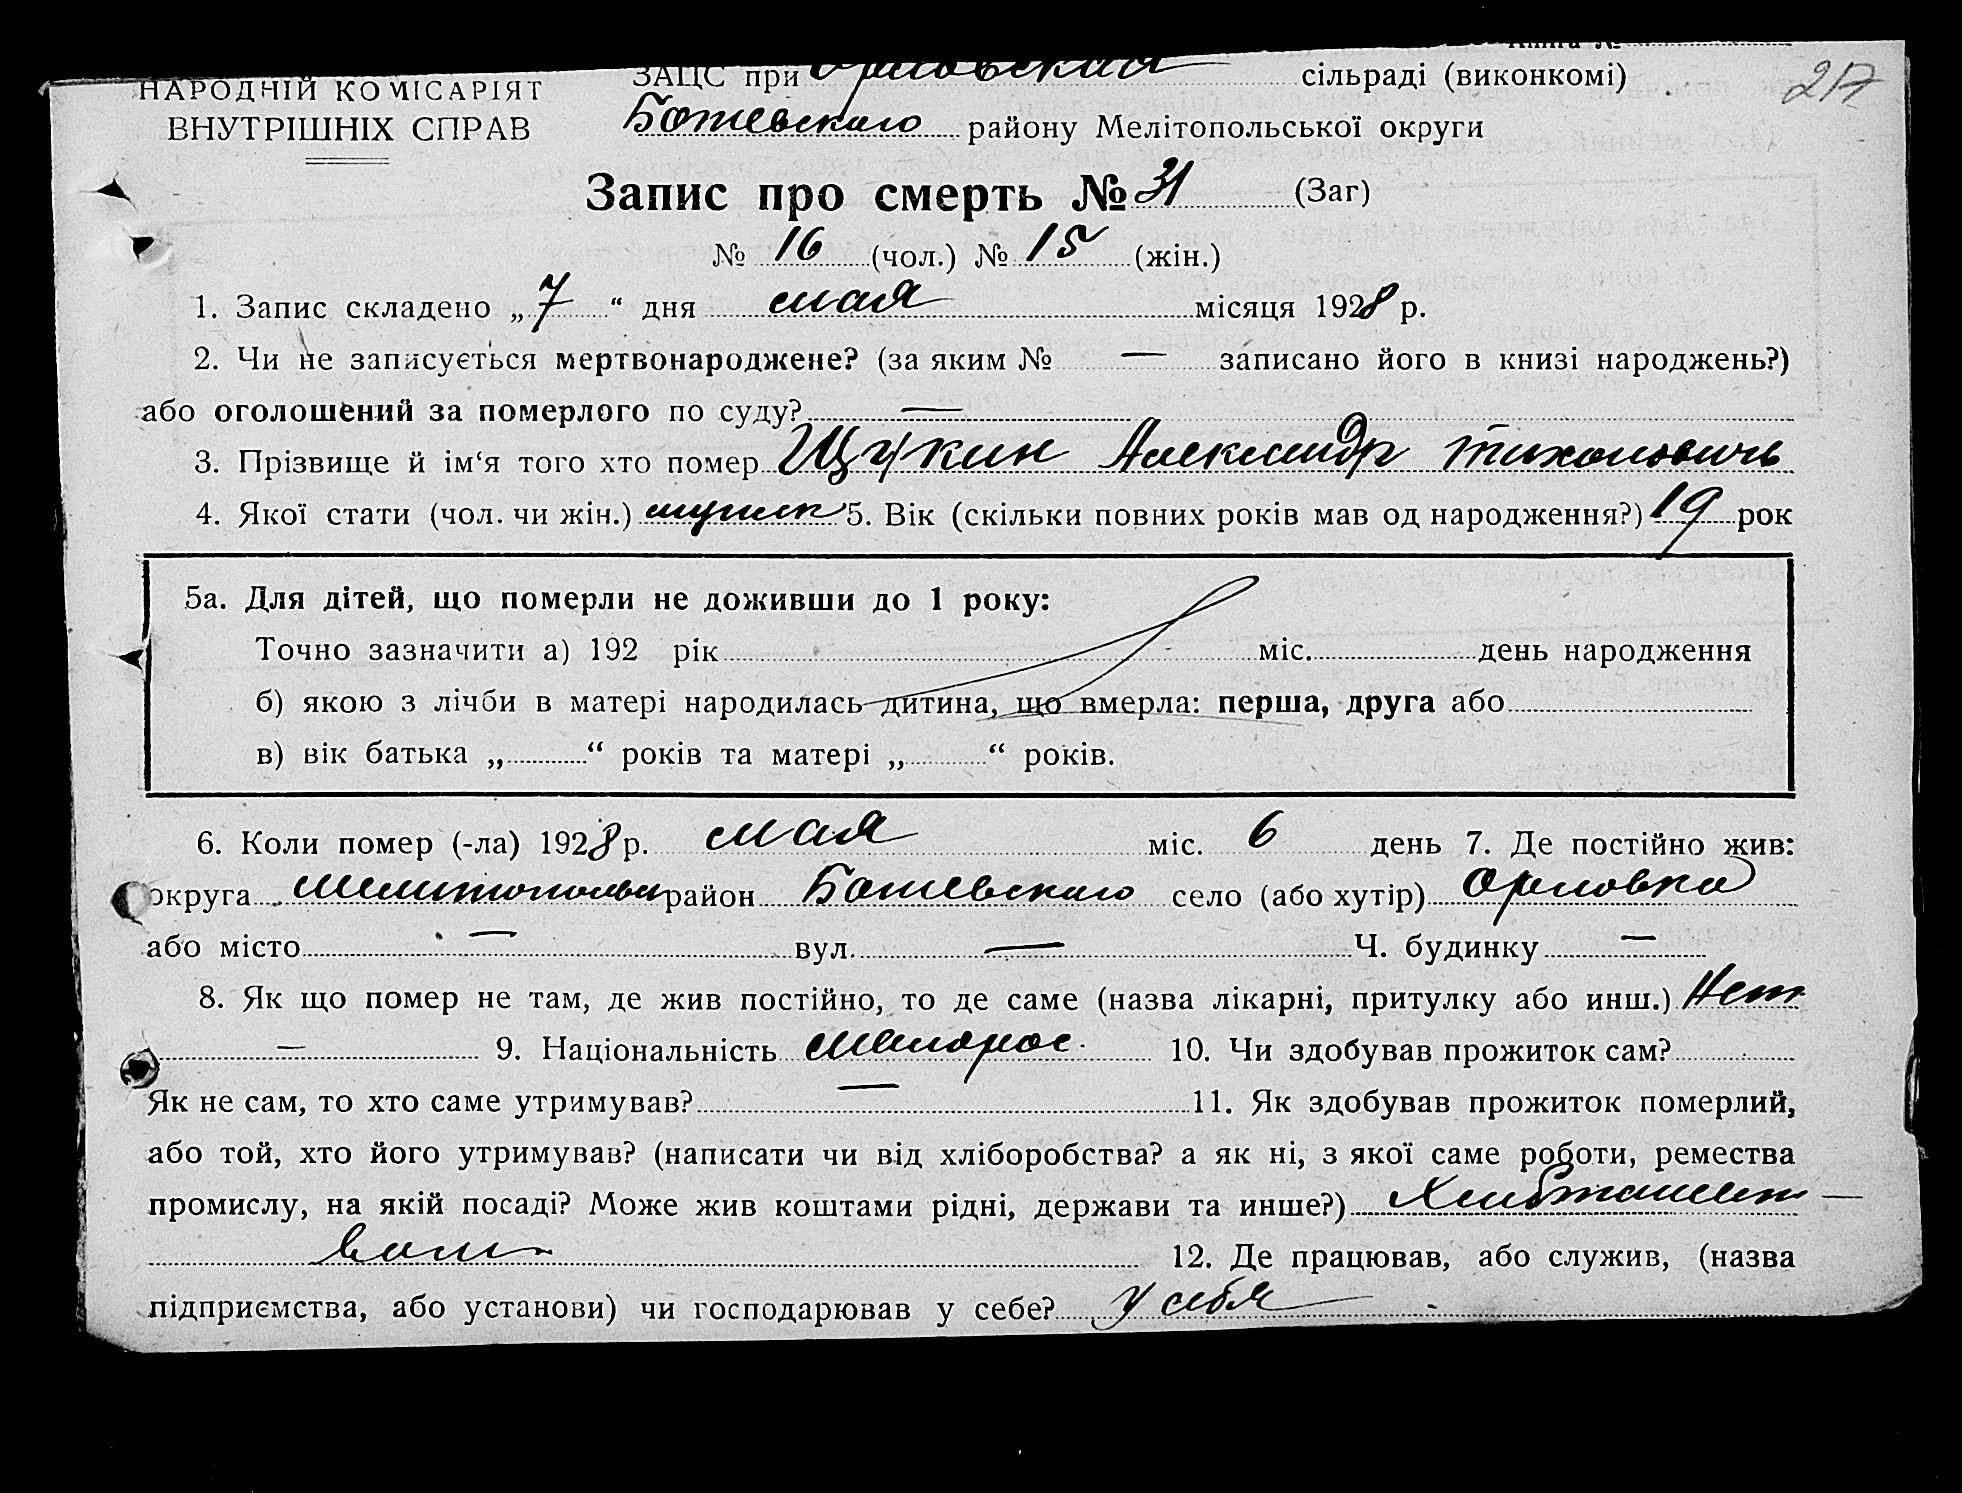 НАРОДНІЙ КОМІСАРІЯТ
ВНУТРІШНІХ СПРАВ
ЗАЦС при Орловская сільраді (виконкомі) 217
Ботевскаго району Мелітопольської округи
Запис про смерть № 31 (Заг)
№ 16 (чол.) № 15 (жін.)
1. Запис складено „ 7 “ дня мая місяця 1928 р.
2. Чи не записується мертвонароджене? (за яким № — записано його в книзі народжень?)
або оголошений за померлого по суду? —
3. Прізвище й ім‘я того хто помер Щукин Александр Тихонович
4. Якої стати (чол. чи жін.) мужск 5. Вік (скільки повних років мав од народження?) 19 рок
5а. Для дітей, що померли не доживши до 1 року:
Точно зазначити а) 192 рік міс. день народження
б) якою з лічби в матері народилась дитина, що вмерла: перша, друга або
в) вік батька „ “ років та матері „ “ років.
6. Коли помер (-ла) 1928 р. мая міс. 6 день 7. Де постійно жив:
округа Мелитопольск район Ботевскаго село (або хутір) Орловка
або місто — вул. — Ч. будинку —
8. Як що помер не там, де жив постійно, то де саме (назва лікарні, притулку або инш.) Нет
— 9. Національність Малорос 10. Чи здобував прожиток сам?
Як не сам, то хто саме утримував? — 11. Як здобував прожиток померлий,
або той, хто його утримував? (написати чи від хліборобства? а як ні, з якої саме роботи, ремества
промислу, на якій посаді? Може жив коштами рідні, держави та инше?) Хлебопашест —
вом 12. Де працював, або служив, (назва
підприємства, або установи) чи господарював у себе? у себя